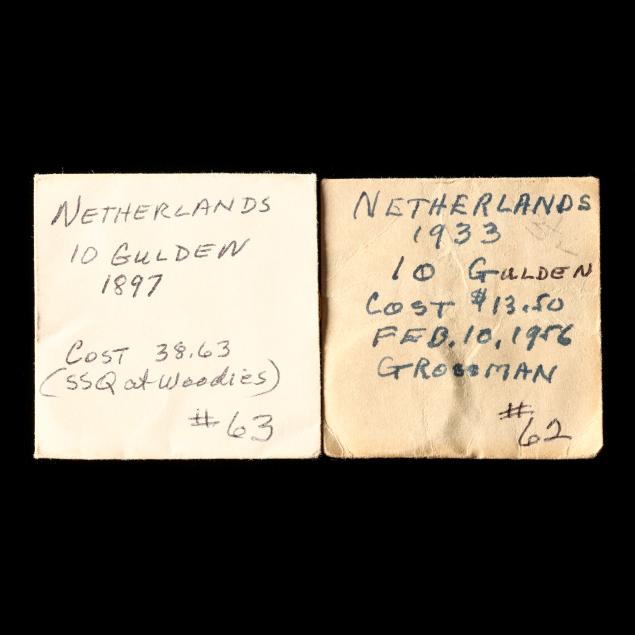 NETHERLANDS
10 GULDEN
1897
COST 38.63
(SSQ at Woodies)
#63
NETHERLANDS
1933
10 GULDEN
COST $13.50
FEB. 10, 1956
GROSSMAN
#62